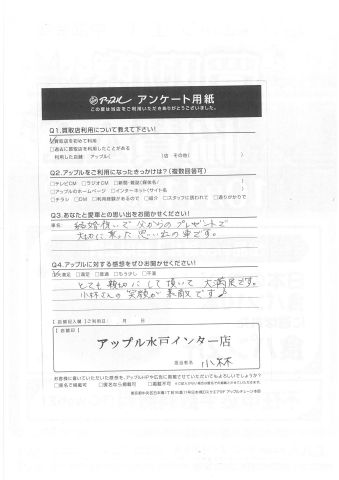 アップル アンケート用紙
この度は当店をご利用いただきありがとうございました。
Q1.買取店利用について教えて下さい!
☑買取店を初めて利用
□過去に買取店を利用したことがある
利用した店舗 アップル( )店 その他( )
Q2.アップルをご利用になったきっかけは?(複数回答可)
□テレビCM □ラジオCM □新聞・雑誌(媒体名: )
□アップルのホームページ □インターネット(サイト名 )
□チラシ □DM □利用経験があるので □紹介 □スタッフに誘われて □通りがかりで
Q3.あなたと愛車との思い出をお聞かせください!
車名: 結婚祝いで父からのプレゼントで
大切に乗った思い出の車です。
Q4.アップルに対する感想をぜひお聞かせください!
☑大満足 □満足 □普通 □もう少し □不満
とても親切にして頂いて大満足です。
小林さんの笑顔が素敵です♪
【店舗記入欄】ご利用日: 月 日
【店舗印】
アップル水戸インター店
担当者名 小林
お客様に書いていただいた感想を、アップルHPや広告に掲載させていただいてもよろしいでしょうか?
□実名で掲載可 □匿名なら掲載可 □掲載不可